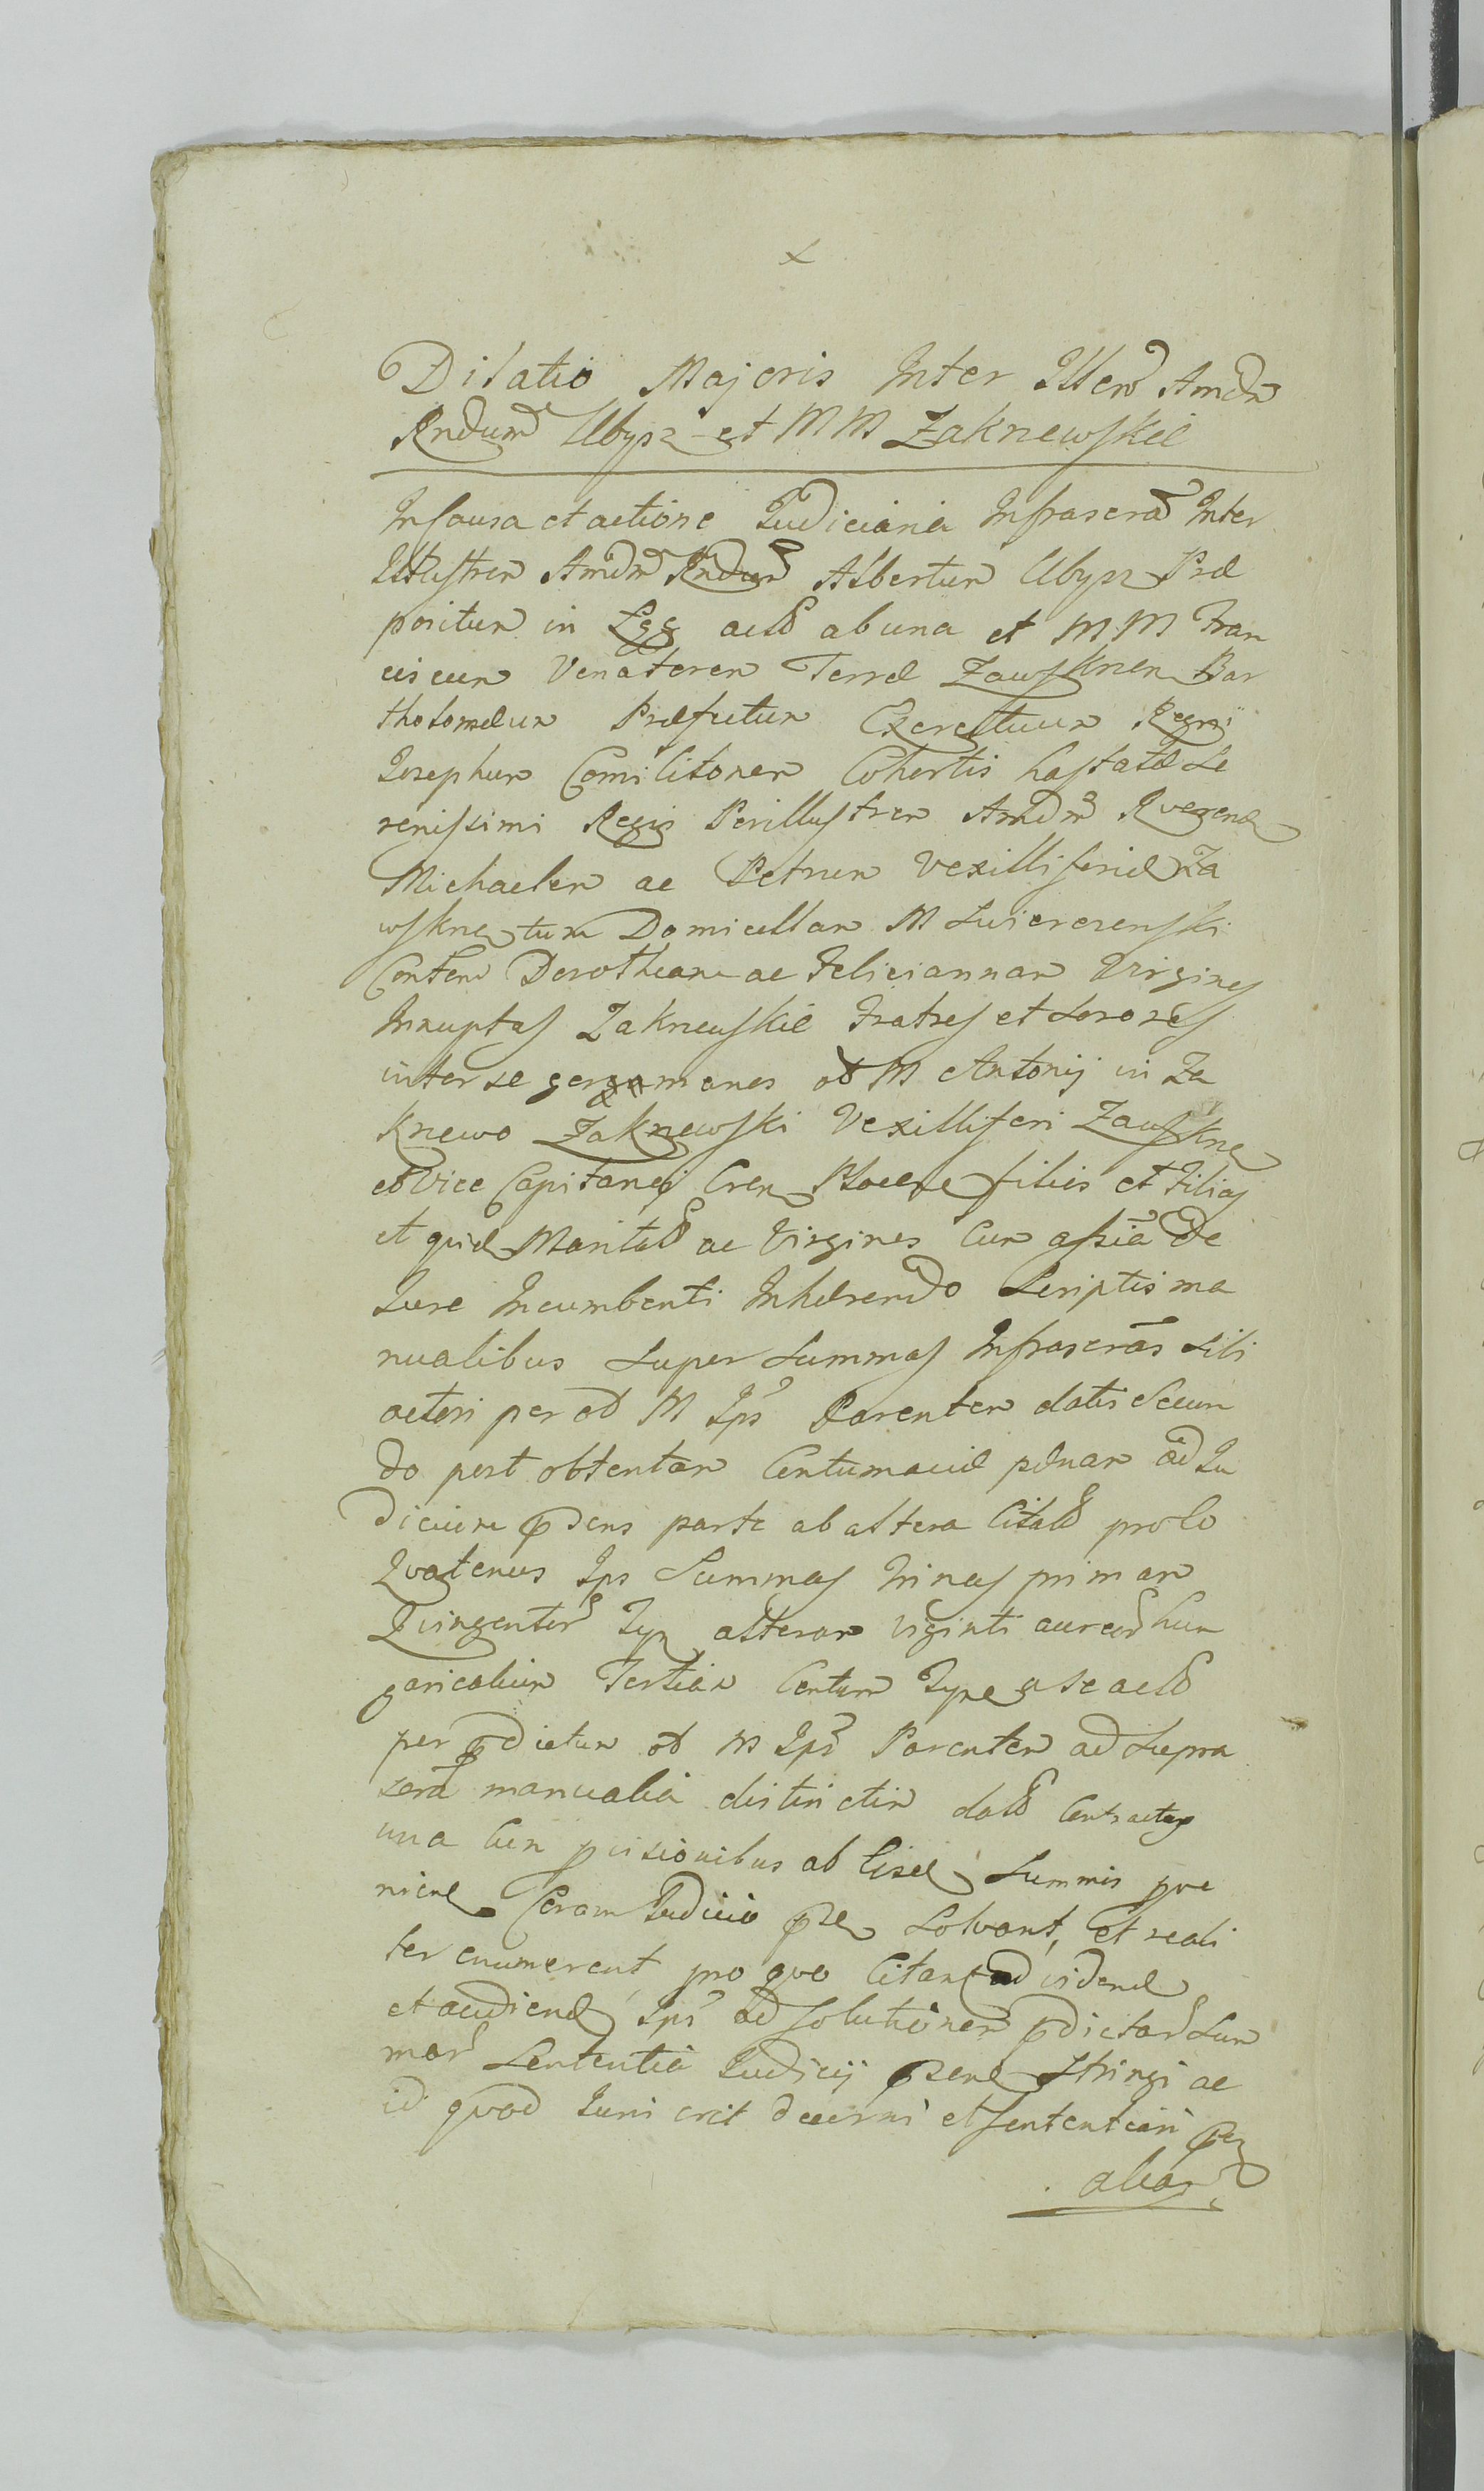 Dilatio Majoris Inter Illrem Amdm
Rndum Ubysz et MM Zaknewskie
In Causa et actione Judiciaria Infrascrā Inter
Illustrem Amdm Rndum Albertum Ubysz Præ
positum in actō ab una et M M Fran
ciscum Venatorem Terræ Zawsknen Bar
tholomæum Præfectum Exercituum Regni
Josephum Comilitonem Cohortis hastatæ Se
renissimi Regis Perillustrem Amdm Rverend
Michaelem ac Petrum Vexilliferidæ Za
wskne tum Domicellam M Swierczenski
Contem Dorotheam ac Feliciannam Virgines
Innuptas Zakneuskie Fratres et Sorores
inter se germanos od M Antonij in Za
knewo Zaknewski Vexilliferi Zawskne
et Vice Capitanei Cren filios et Filias
et quid Maritatō ac Virgines cum assiā de
Jure Incumbenti Inhærendo Scriptis ma
nualibus Super Summas Infrascrās Sibi
actori per od M Ips Parentem datis Secun
do post obtentam Contumaciæ pænam ad Ju
dicium pdens parte ab altera Citatō pro Eo
Quatenus Ips Summas trinas primam
Quingentor Typ alteram viginti aureor hun
garicalium Tertiam Centum Type a se actō
per pdictum od M Ips Parentem ad Supra
scrā manualia distinctim datō Contractas
una cum pvisionibus ab eisd Summis pve
niend Coram Judicio pse Solvant, et reali
ter enumerent pro quo Citant ad vidend
et audiend Ips ad solutionem pdictar Sum
mar Sententiā Judicij psens Stringi ac
id quod Juris erit decerni et sententiari per
aliar